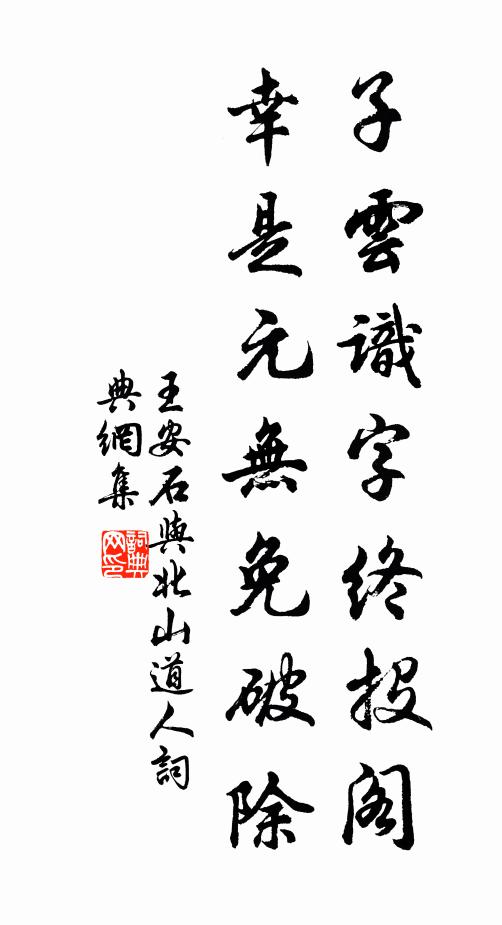 子雲識字終投閣
幸是元無免破除
王安石與北山道人詞
典網集
詞典
网印